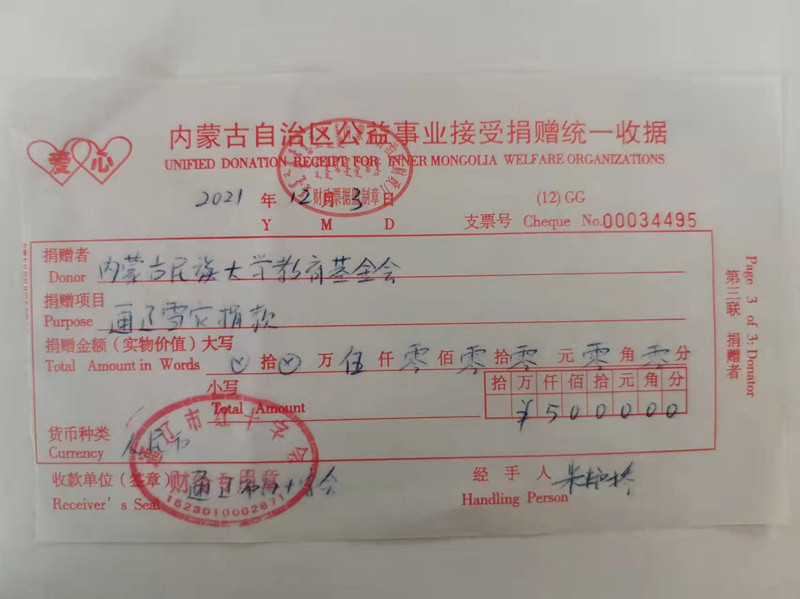 爱心
内蒙古自治区公益事业接受捐赠统一收据
UNIFIED DONATION RECEIPT FOR INNER MONGOLIA WELFARE ORGANIZATIONS
财政票据监制章
2021 年 12 月 3 日
Y M D
(12) GG
支票号 Cheque No.00034495
捐赠者
Donor 内蒙古民族大学教育基金会
捐赠项目
Purpose 通辽雪灾捐款
捐赠金额（实物价值）大写
Total Amount in Words 拾 万 伍 仟 零 佰 零 拾 零 元 零 角 零 分
小写
Total Amount
拾 万 仟 佰 拾 元 角 分
¥ 5 0 0 0 0 0
货币种类
Currency 人民币
通辽市红十字会
财务专用章
收款单位（签章） 通辽市红十字会
Receiver's Seal
经手人
Handling Person
第三联 捐赠者
Page 3 of 3: Donator